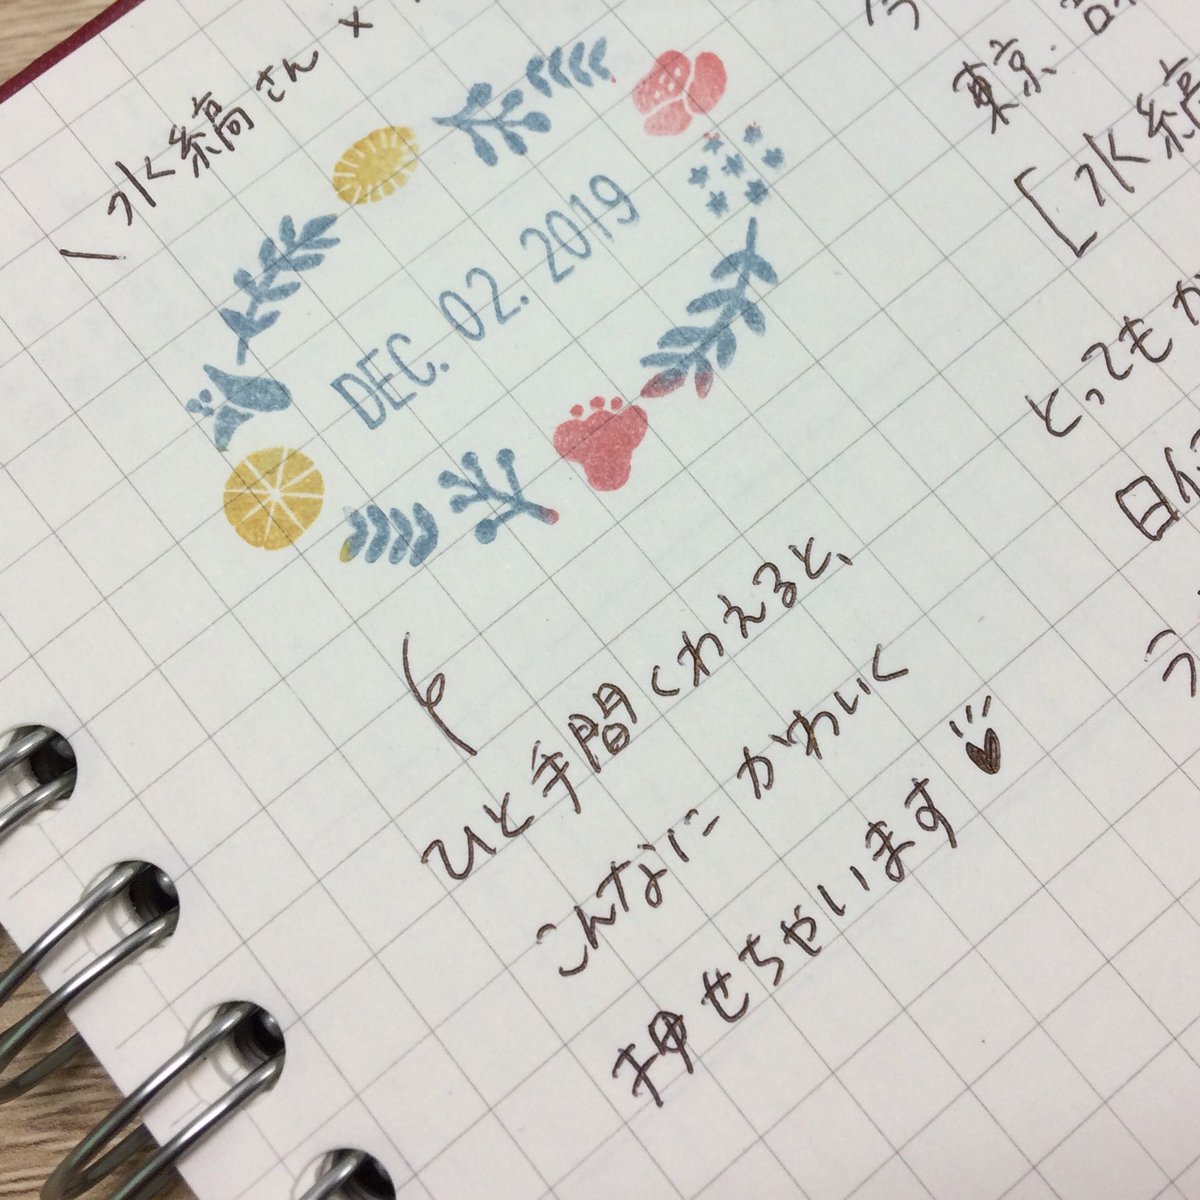 \ 水縞さん ×
DEC. 02. 2019
ひと手間くわえると、
こんなに かわいく
押せちゃいます
今
東京.
[水縞
とっても か
日付
う